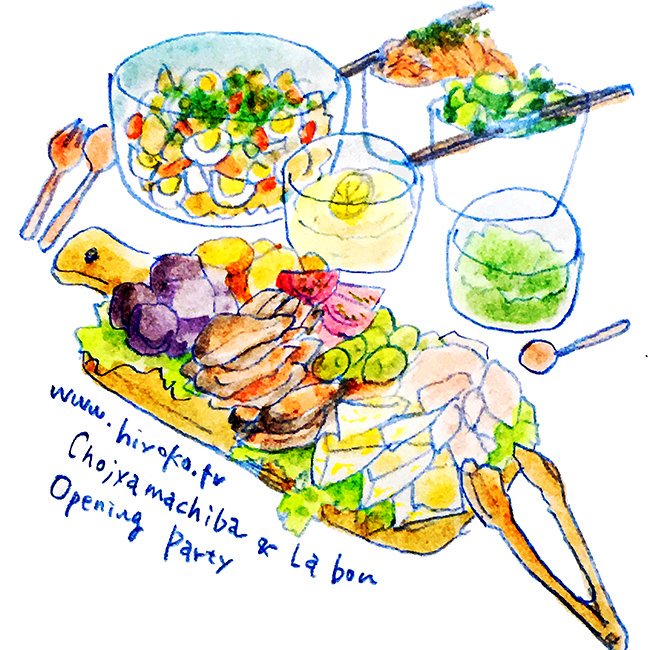 www.hiroko.fr
Chojyamachiba & La bon
Opening Party